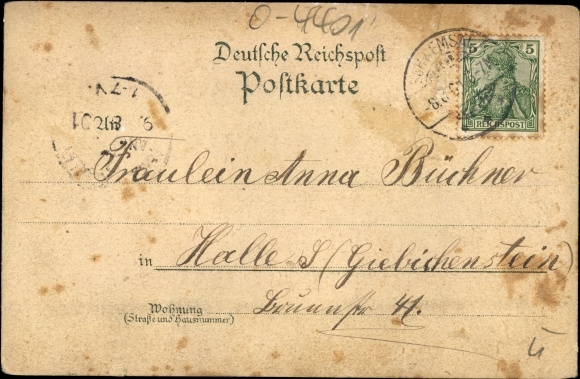 0-4401
Deutsche Reichspost
Postkarte
5 5
REICHSPOST
1-2 N
9. 01
Fräulein Anna Büchner
in Halle S (Giebichenstein)
Wohnung
(Straße und Hausnummer)
Brunnstr 41.